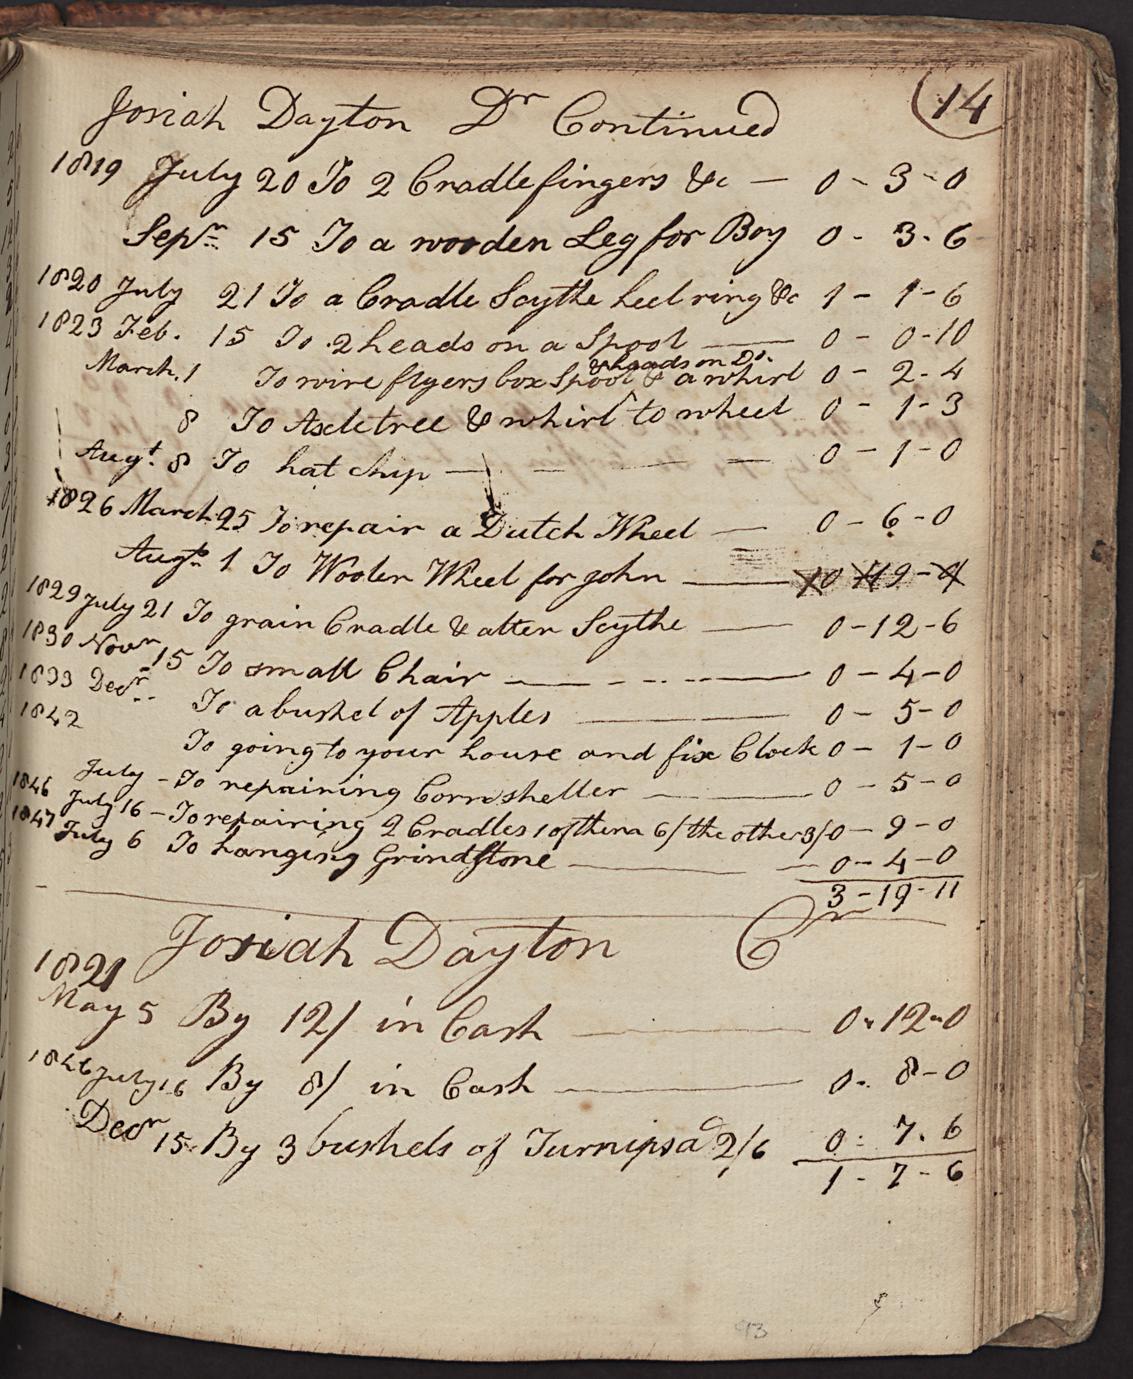 14
Josiah Dayton Dr Continued
1819 July 20 To 2 Cradlefingers &c — 0 - 3 - 0
Sepr. 15 To a wooden Leg for Boy 0 - 3 - 6
1820 July 21 To a Cradle Scythe heel ring &c 1 - 1 - 6
1823 Feb. 15 To 2 heads on a Spool — 0 - 0 - 10
& heads on Do.
March. 1 To wire flyers box Spool & a whirl 0 - 2 - 4
8 To Axletree & whirl ^ to wheel 0 - 1 - 3
Augt. 8 To hat chip — 0 - 1 - 0
1826 March 25 To repair a Dutch Wheel — 0 - 6 - 0
Augt. 1 To Woolen Wheel for John —
1829 July 21 To grain Cradle & alter Scythe — 0 - 12 - 6
1830 Novr 15 To small Chair — 0 - 4 - 0
1833 Decr. To a bushel of Apples — 0 - 5 - 0
1842
To going to your house and fix Clock 0 - 1 - 0
July - To repairing Cornsheller — 0 - 5 - 0
1846 July 16 - To repairing 2 Cradles 1 of them 6/ the other 3/ 0 - 9 - 0
1847 July 6 To hanging Grindstone — 0 - 4 - 0
3 - 19 - 11
Josiah Dayton Cr
1821
May 5 By 12/ in Cash — 0 - 12 - 0
1846 July 16 By 8/ in Cash — 0 - 8 - 0
Decr 15 By 3 bushels of Turnips a 2/6 0 - 7 - 6
1 - 7 - 6
93